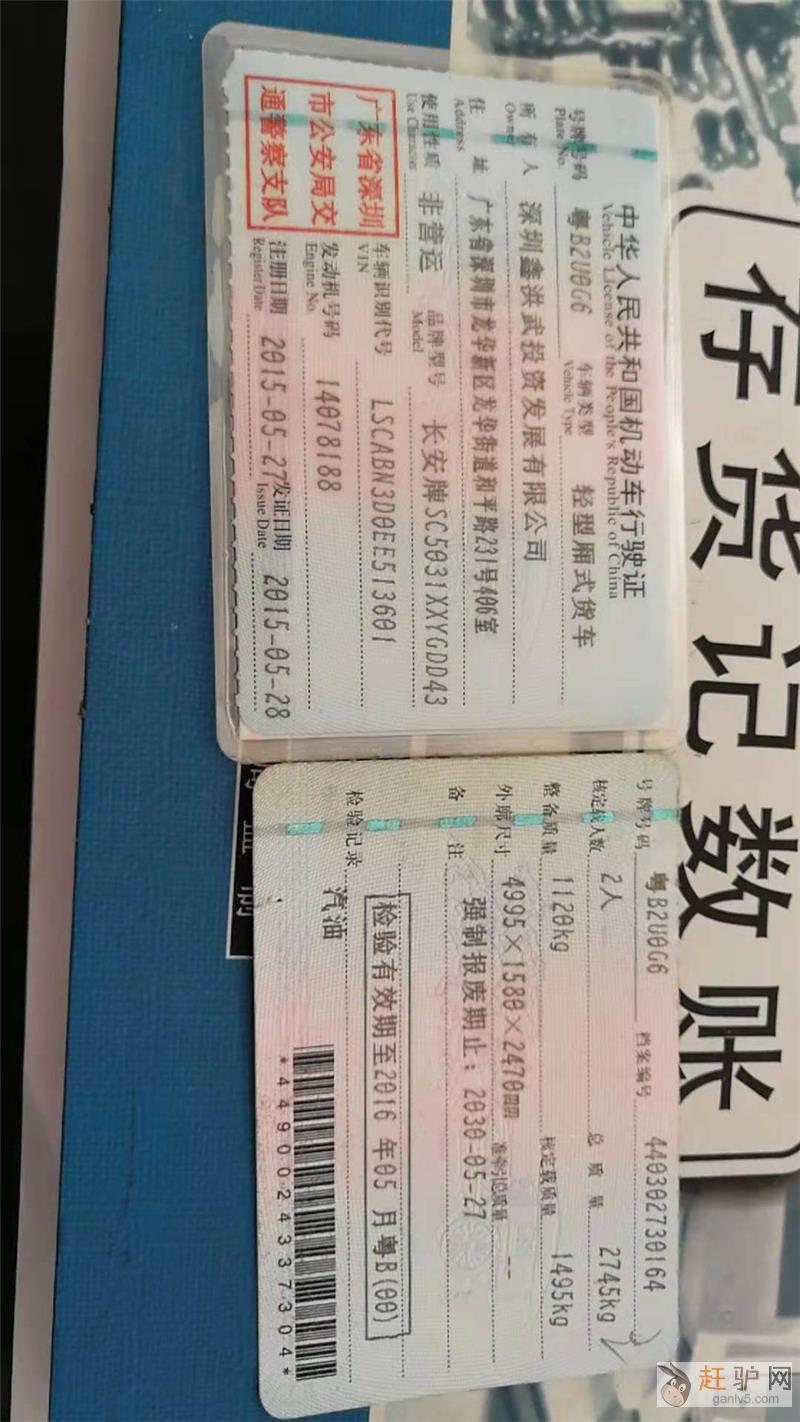 中华人民共和国机动车行驶证
Vehicle License of the People's Republic of China
号牌号码 粤B2U0G6 车辆类型 轻型厢式货车
Plate No. Vehicle Type
所有人 深圳鑫洪武投资发展有限公司
Owner
住址 广东省深圳市龙华新区龙华街道和平路231号406室
Address
使用性质 非营运 品牌型号 长安牌SC5031XXYGDD43
Use Character Model
广东省深圳
市公安局交
通警察支队
车辆识别代号 LSCABN3D0EE513601
VIN
发动机号码 14078188
Engine No.
注册日期 2015-05-27 发证日期 2015-05-28
Register Date Issue Date
号牌号码 粤B2U0G6 档案编号 440302730164
核定载人数 2人 总质量 2745kg
整备质量 1120kg 核定载质量 1495kg
外廓尺寸 4995×1580×2470mm 准牵引总质量 --
备注 强制报废期止：2030-05-27
检验有效期至2016年05月粤B(00)
检验记录
汽油
*4490024337304*
存货记数账
赶驴网
ganlv5.com